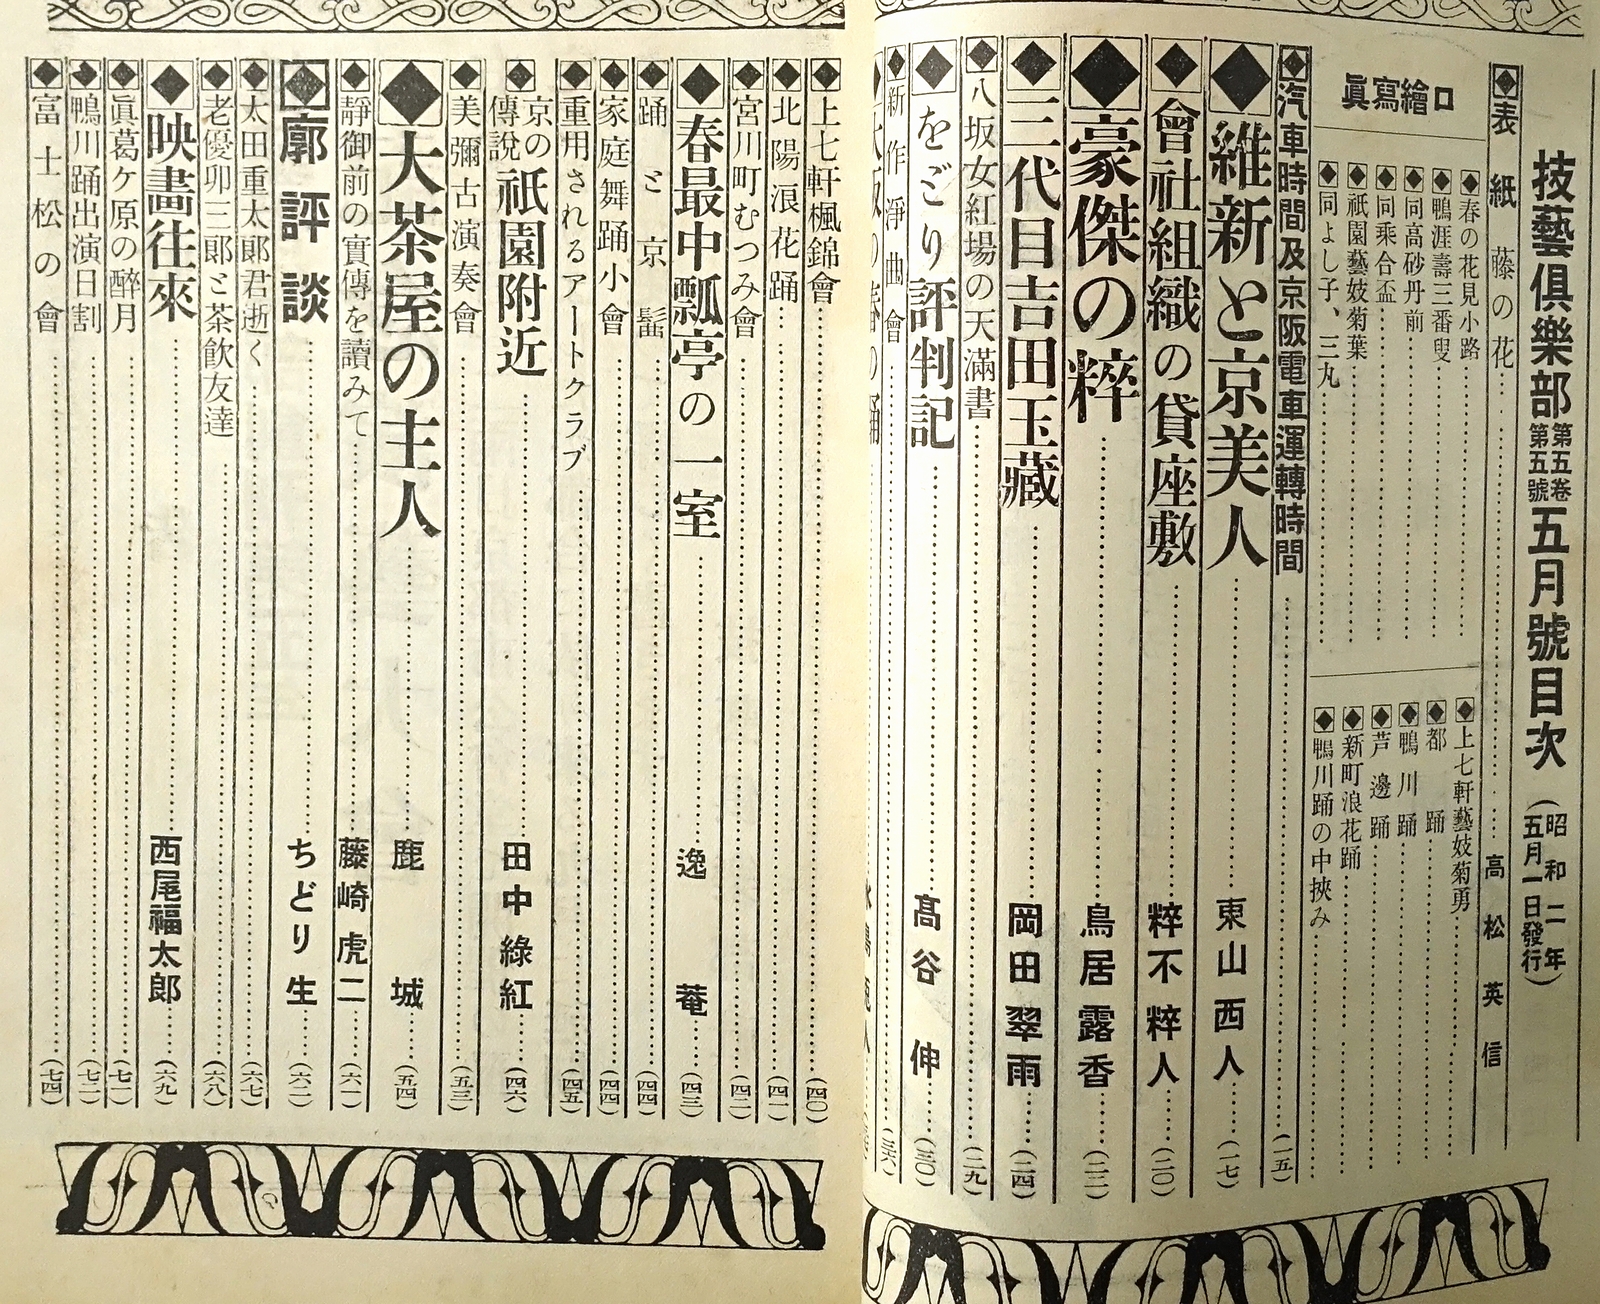 技藝倶樂部 第五卷第五號 五月號目次 (昭和二年五月一日發行)
◆表紙 藤の花……高松英信
口繪寫眞
◆春の花見小路……
◆鴨涯壽三番叟……
◆同高砂丹前……
◆同乘合盃……
◆祇園藝妓菊葉……
◆同よし子、三丸
◆上七軒藝妓菊勇
◆都踊……
◆鴨川踊……
◆芦邊踊……
◆新町浪花踊……
◆鴨川踊の中挾み
◆汽車時間及京阪電車運轉時間……(一五)
◆維新と京美人……東山西人……(一七)
◆會社組織の貸座敷……粹不粹人……(二〇)
◆豪傑の粹……鳥居露香……(二二)
◆二代目吉田玉藏……岡田翠雨……(二四)
◆八坂女紅場の天滿書……(二九)
◆をどり評判記……髙谷伸……(三〇)
◆新作淨曲會……(三六)
◆上七軒楓錦會……(四〇)
◆北陽浪花踊……(四一)
◆宮川町むつみ會……(四二)
◆春最中瓢亭の一室……逸菴……(四三)
◆踊と京髷……(四四)
◆家庭舞踊小會……(四四)
◆重用されるアートクラブ……(四五)
◆京の傳説 祇園附近……田中綠紅……(四六)
◆美彌古演奏會……(五三)
◆大茶屋の主人……鹿城……(五四)
◆靜御前の實傳を讀みて……藤崎虎二……(六一)
◆廓評談……ちどり生……(六二)
◆太田重太郎君逝く……(六七)
◆老優卯三郎と茶飲友達……(六八)
◆映畫往來……西尾福太郎……(六九)
◆眞葛ケ原の醉月……(七一)
◆鴨川踊出演日割……(七二)
◆富士松の會……(七四)